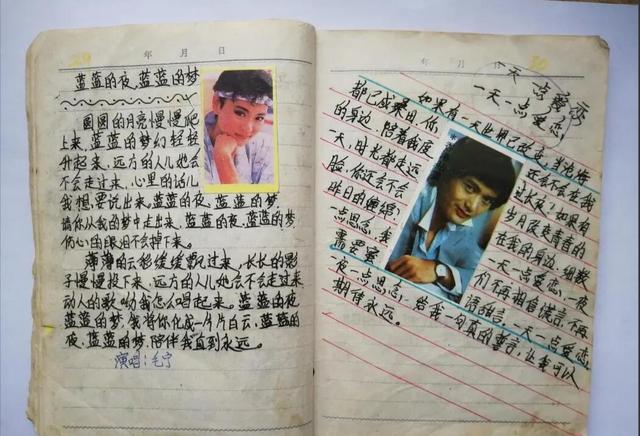 29 年 月 日
蓝蓝的夜,蓝蓝的梦
圆圆的月亮慢慢爬
上来,蓝蓝的梦幻轻轻
升起来,远方的人儿她会
不会走过来,心里的话儿
我想要说出来,蓝蓝的夜,蓝蓝的梦,
请你从我的梦中走出来,蓝蓝的夜,蓝蓝的梦
伤心的眼泪不会掉下来。
薄薄的云彩缓缓飘过来,长长的影
子慢慢投下来,远方的人儿她会不会走过来
动人的歌呦我怎么唱起来。蓝蓝的夜
蓝蓝的梦,我将你化成一片片白云,蓝蓝的
夜,蓝蓝的梦,陪伴我直到永远。
演唱:毛宁
年 月 30
一天一点爱恋
如果有一天世界已改变,当沧海
都已成桑田,你还会不会在我
的身边,陪着我度过长夜?如果有
一天,时光都走远岁月改变青春的
脸,你还会不会在我的身边,细数
昨日的缠绵?一天一点爱恋,一夜
一点思念,我们不再相信谎言,不再
需要蜜语甜言,一天一点爱恋,
一夜一点思念,给我一句真的誓言,让我可以
期待永远。